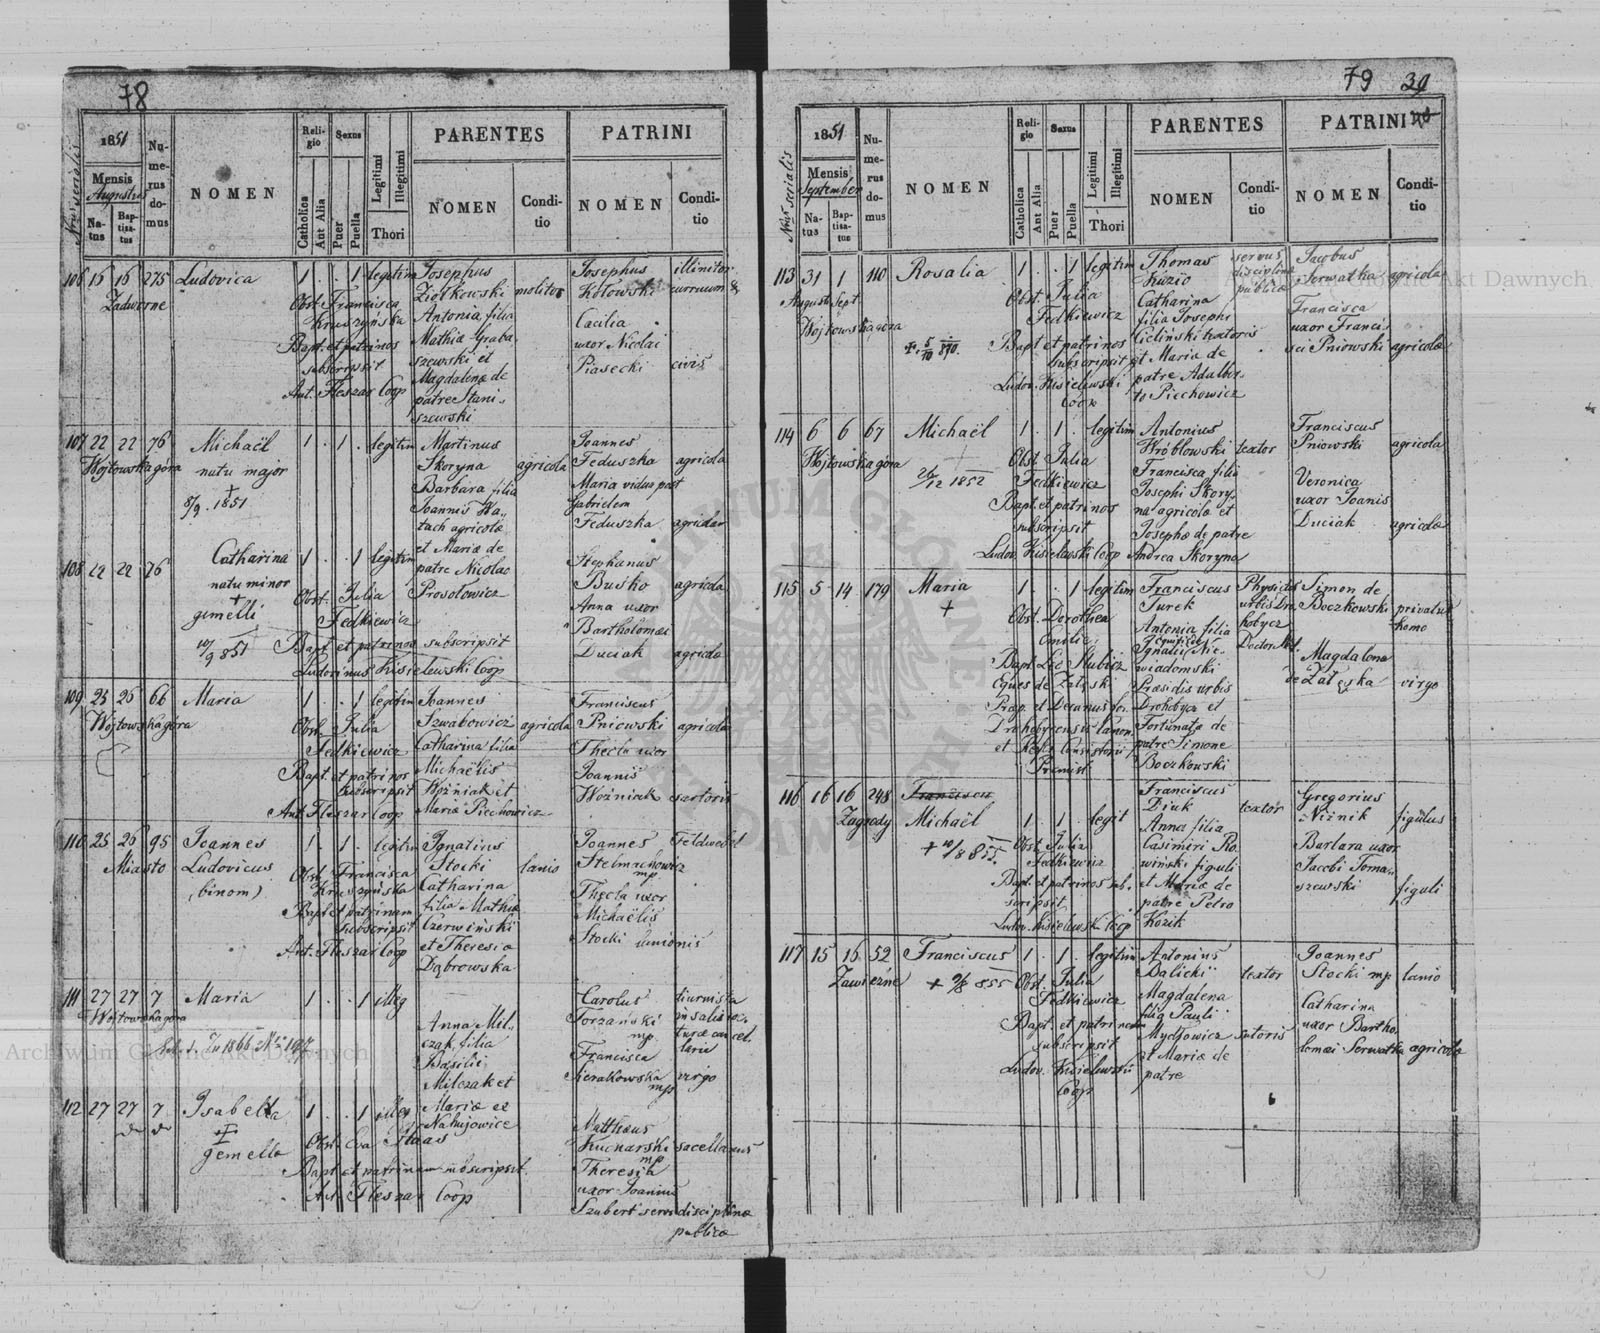 78
1851
Mensis
Augustus
Natus
Baptisatus
Numerus domus
NOMEN
Religio
Catholica
Aut Alia
Sexus
Puer
Puella
Legitimi
Illegitimi
Thori
PARENTES
NOMEN
Conditio
PATRINI
NOMEN
Conditio
106 15 16 275 Ludovica 1 . . 1 legitim Josephus
Ziółkowski molitor
Antonia filia
Mathiæ Graba
szewski et
Magdalenæ de
patre Stani
szewski
Josephus
Kołowski
Cæcilia
uxor Nicolai
Piasecki civis
illinitor
curruum
Zadworne
Obst. Francisca
Kruszyńska
Bapt. et patrinos
subscripsit
Ant. Fleszar Coop
107 22 22 76 Michaël 1 . 1 . legitim Martinus
natu major
+
8/9. 1851
Wojtowska góra
Skoryna agricola
Barbara filia
Joannis
agricolæ
et Mariæ de
patre Nicolao
Prosołowicz
Joannes
Feduszka agricola
Maria vidua post
Gabrielem
Feduszka
108 22 22 76 Catharina 1 . . 1 legitim
natu minor
+
gemelli
10/9 851
Obst. Julia
Fedkiewicz
Bapt. et patrinos subscripsit
Ludovinus Kisielewski Coop
Stephanus
Buśko agricola
Anna uxor
Bartholomæi
Duciak agricolæ
109 25 26 66 Maria 1 . . 1 legitim Joannes
Wojtowska góra
Szwabowicz agricola
Catharina filia
Michaëlis
Woźniak et
Mariæ Piechowicz
Obst. Julia
Fedkiewicz
Bapt et patrinos
subscripsit
Ant. Fleszar Coop
Franciscus
Pniowski agricola
Thecla uxor
Joannis
Woźniak sartoris
110 25 26 95 Joannes 1 . 1 . legitim Ignatius
Miasto Ludovicus
(binom)
Stocki lanio
Catharina
filia Mathiæ
Czerwiński
et Theresiæ
Dąbrowska
Obst. Francisca
Kruszyńska
Bapt et patrinum
subscripsit
Ant. Fleszar Coop
Joannes Feldwebel
Stelmachowicz
mp
Thecla uxor
Michaëlis
Stocki lanionis
111 27 27 7 Maria 1 . . 1 illeg
Wojtowska góra
1866 Nro 197
Anna Mil
czak filia
Basilii
Milczak et
Mariæ ex
Nahujowice
Carolus diurnista
Torzański
mp
Francisca
Sierakowska virgo
mp
112 27 27 7 Isabella 1 . . 1 illeg
gemellæ
Obst. Eva Staas
Bapt et patrinum subscripsit
Ant Fleszar Coop
Matthæus
Kucharski sacellanus
mp
Theresia
uxor Joannis
Szubert servi disciplinæ
publicæ
79 39
1851
Mensis
September
Natus
Baptisatus
Nrus serialis
Numerus domus
NOMEN
Religio
Catholica
Aut Alia
Sexus
Puer
Puella
Legitimi
Illegitimi
Thori
PARENTES
NOMEN
Conditio
PATRINI
NOMEN
Conditio
113 31 1 110 Rosalia 1 . . 1 legitim Thomas
August Sept.
Wojtowska góra
Kuzio
servus
disciplinæ
publicæ
Catharina
filia Josephi
Cieliński textoris
et Mariæ de
patre Adalber
to Piechowicz
Obst. Julia
Fedkiewicz
Bapt et patrinos
subscripsit
Ludov. Kisielewski
Coop
Jacobus
Serwatka agricola
Francisca
uxor Franci
sci Pniowski agricolæ
114 6 6 67 Michaël 1 . 1 . legitim Antonius
Wojtowska góra
1852
Wróblowski textor
Francisca filia
Josephi Skory
na agricolæ et
Josephæ de patre
Andrea Skoryna
Obst. Julia
Fedkiewicz
Bapt. et patrinos
subscripsit
Ludov. Kisielewski Coop
Franciscus
Pniowski agricola
Veronica
uxor Joannis
Duciak agricolæ
115 5 14 179 Maria 1 . . 1 legitim Franciscus
+
Turek
Physicus
urbis Dro
hobycz
Antonia filia
Ignatii Nie
wiadomski
Præsidis urbis
Drohobycz et
Fortunatæ de
patre Simone
Boczkowski
Obst. Dorothea
Bapt. Leo Kubicz
Eques de Załęski
Præp. et Decanus for.
Drohobycensis Canon.
Simon de
Boczkowski privatus
homo
Magdalena
de Załęska virgo
116 16 16 248 Franciscus
Zagrody Michaël 1 . 1 . legit
Franciscus
Diuk textor
Anna filia
Casimiri Ro
wiński figuli
et Mariæ de
patre Petro
Kozik
Obst. Julia
Fedkiewicz
Bapt. et patrinos sub
scripsit
Ludov. Kisielewski Coop
Gregorius
Niżnik figulus
Barbara uxor
Jacobi Toma
szewski figuli
117 15 16 52 Franciscus 1 . 1 . legitim Antonius
Zawieźne
855
Balicki textor
Magdalena
filia Pauli
Mychowicz sutoris
et Mariæ de
patre
Obst. Julia
Fedkiewicz
Bapt. et patrinum
subscripsit
Ludov. Kisielewski
Coop
Joannes
Stocki mp lanio
Catharina
uxor Bartho
lomæi Serwatka agricolæ
Archiwum Główne Akt Dawnych
Archiwum Główne Akt Dawnych
ARCHIWUM GŁÓWNE AKT DAWNYCH